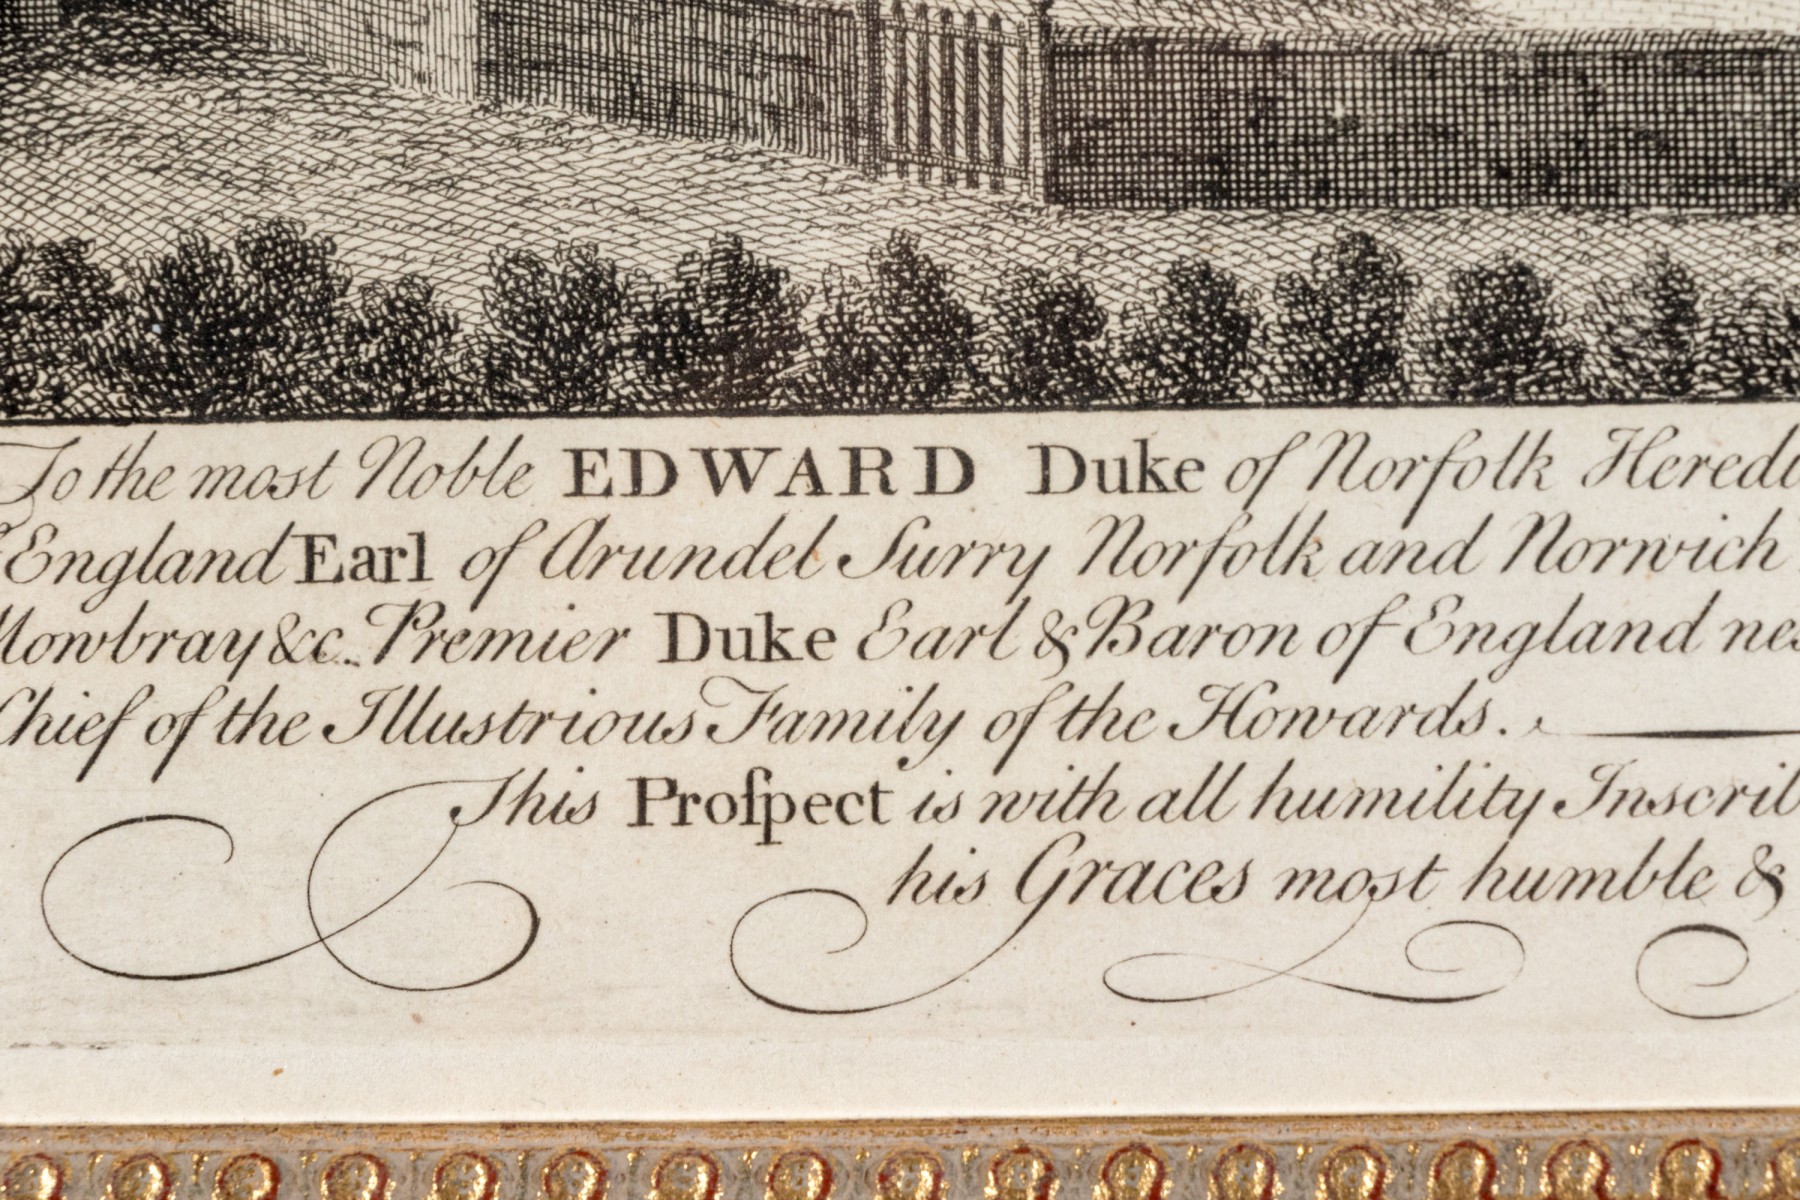 To the most Noble EDWARD Duke of Norfolk
England Earl of Arundel Surry Norfolk and Norwich
Mowbray &c. Premier Duke Earl & Baron of England
Chief of the Illustrious Family of the Howards.
This Proſpect is with all humility
his Graces most humble &